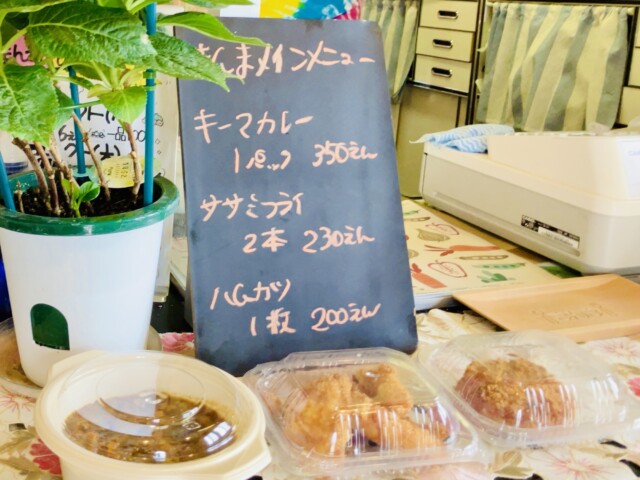 さんまメインメニュー
キーマカレー
1パック 350えん
ササミフライ
2本 230えん
ハムカツ
1枚 200えん